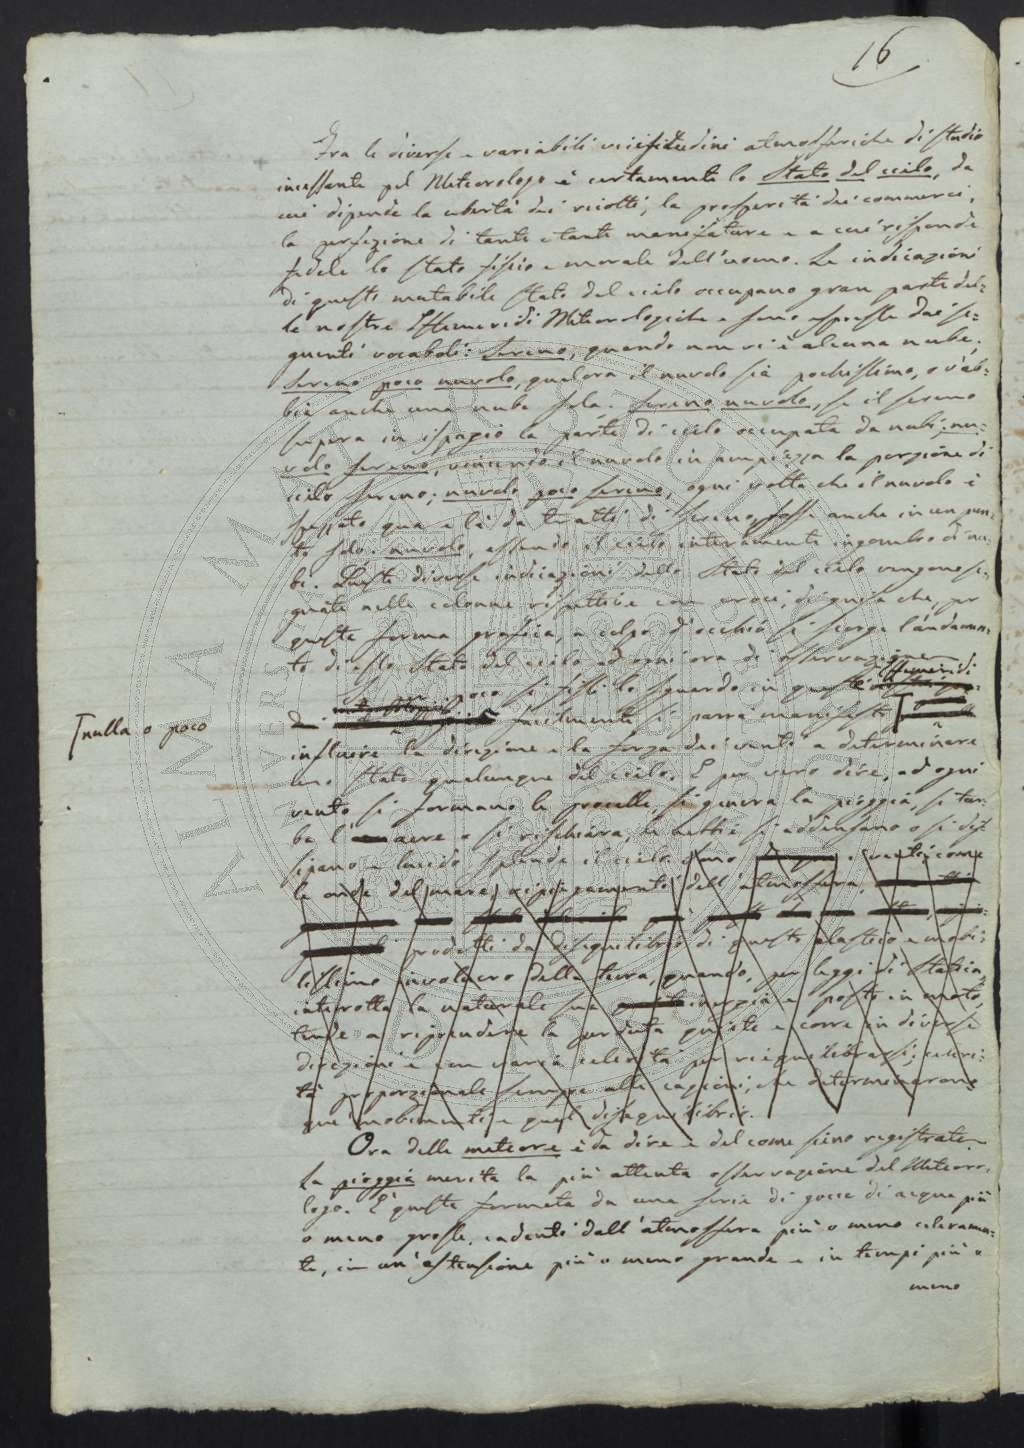 16
Fra le diverse e variabili vicissitudini atmosferiche di studio
incessante pel Meteorologo è certamente lo Stato del cielo, da
cui dipende la ubertà dei ricolti, la prosperità dei commerci,
la perfezione di tante e tante manifatture e a cui risponde
fedele lo stato fisico e morale dell'uomo. Le indicazioni
di questo mutabile stato del cielo occupano gran parte del=
le nostre Effemeridi Meteorologiche e sono espresse dai se=
guenti vocaboli: Sereno, quando non vi è alcuna nube;
Sereno poco nuvolo, qualora il nuvolo sia pochissimo, o v'ab=
bia anche una nube sola; Sereno nuvolo, se il sereno
supera in ispazio la parte di cielo occupata da nubi; nu=
volo sereno, vincendo il nuvolo in ampiezza la porzione di
cielo sereno; nuvolo poco sereno, ogni volta che il nuvolo è
spezzato qua e là da tratti di sereno, foss'anche in un pun=
to solo; nuvolo, essendo il cielo interamente ingombro di nu=
bi. Queste diverse indicazioni dello Stato del cielo vengono se=
gnate nelle colonne rispettive con croci, di guisa che, per
questa forma grafica, a colpo d'occhio si scorge l'andamen=
to di esso Stato del cielo ad ogni ora di osservazione.
Effemeridi
poco si fissi lo sguardo in queste
facilmente si parrà manifesto
nulla o poco
influire la direzione e la forza dei venti a determinare
uno stato qualunque del cielo. E per vero dire, ad ogni
vento si formano le procelle, si genera la pioggia, si tur=
ba l'aere o si rischiara, le nebbie si addensano o si dis=
sipano e lucido splende il cielo. Sono i venti, come
le onde del mare, ripiegamenti dell'atmosfera,
prodotti da disequilibrio di questo elastico e mobi=
lissimo involucro della terra, quando, per leggi di Statica,
interrotta la naturale sua inerzia e posto in moto,
tende a riprendere la perduta quiete e corre in diverse
direzioni e con varia celerità per riequilibrarsi; celeri=
tà proporzionale sempre alle cagioni, che determinarono
que' mobimenti e quel disequilibrio.
Ora delle meteore è da dire e del come sieno registrate.
La pioggia merita la più attenta osservazione del Meteoro=
logo. È questa formata da una serie di gocce di acqua più
o meno grosse, cadenti dall'atmosfera più o meno celeramen=
te, in un'estensione più o meno grande e in tempi più o
meno